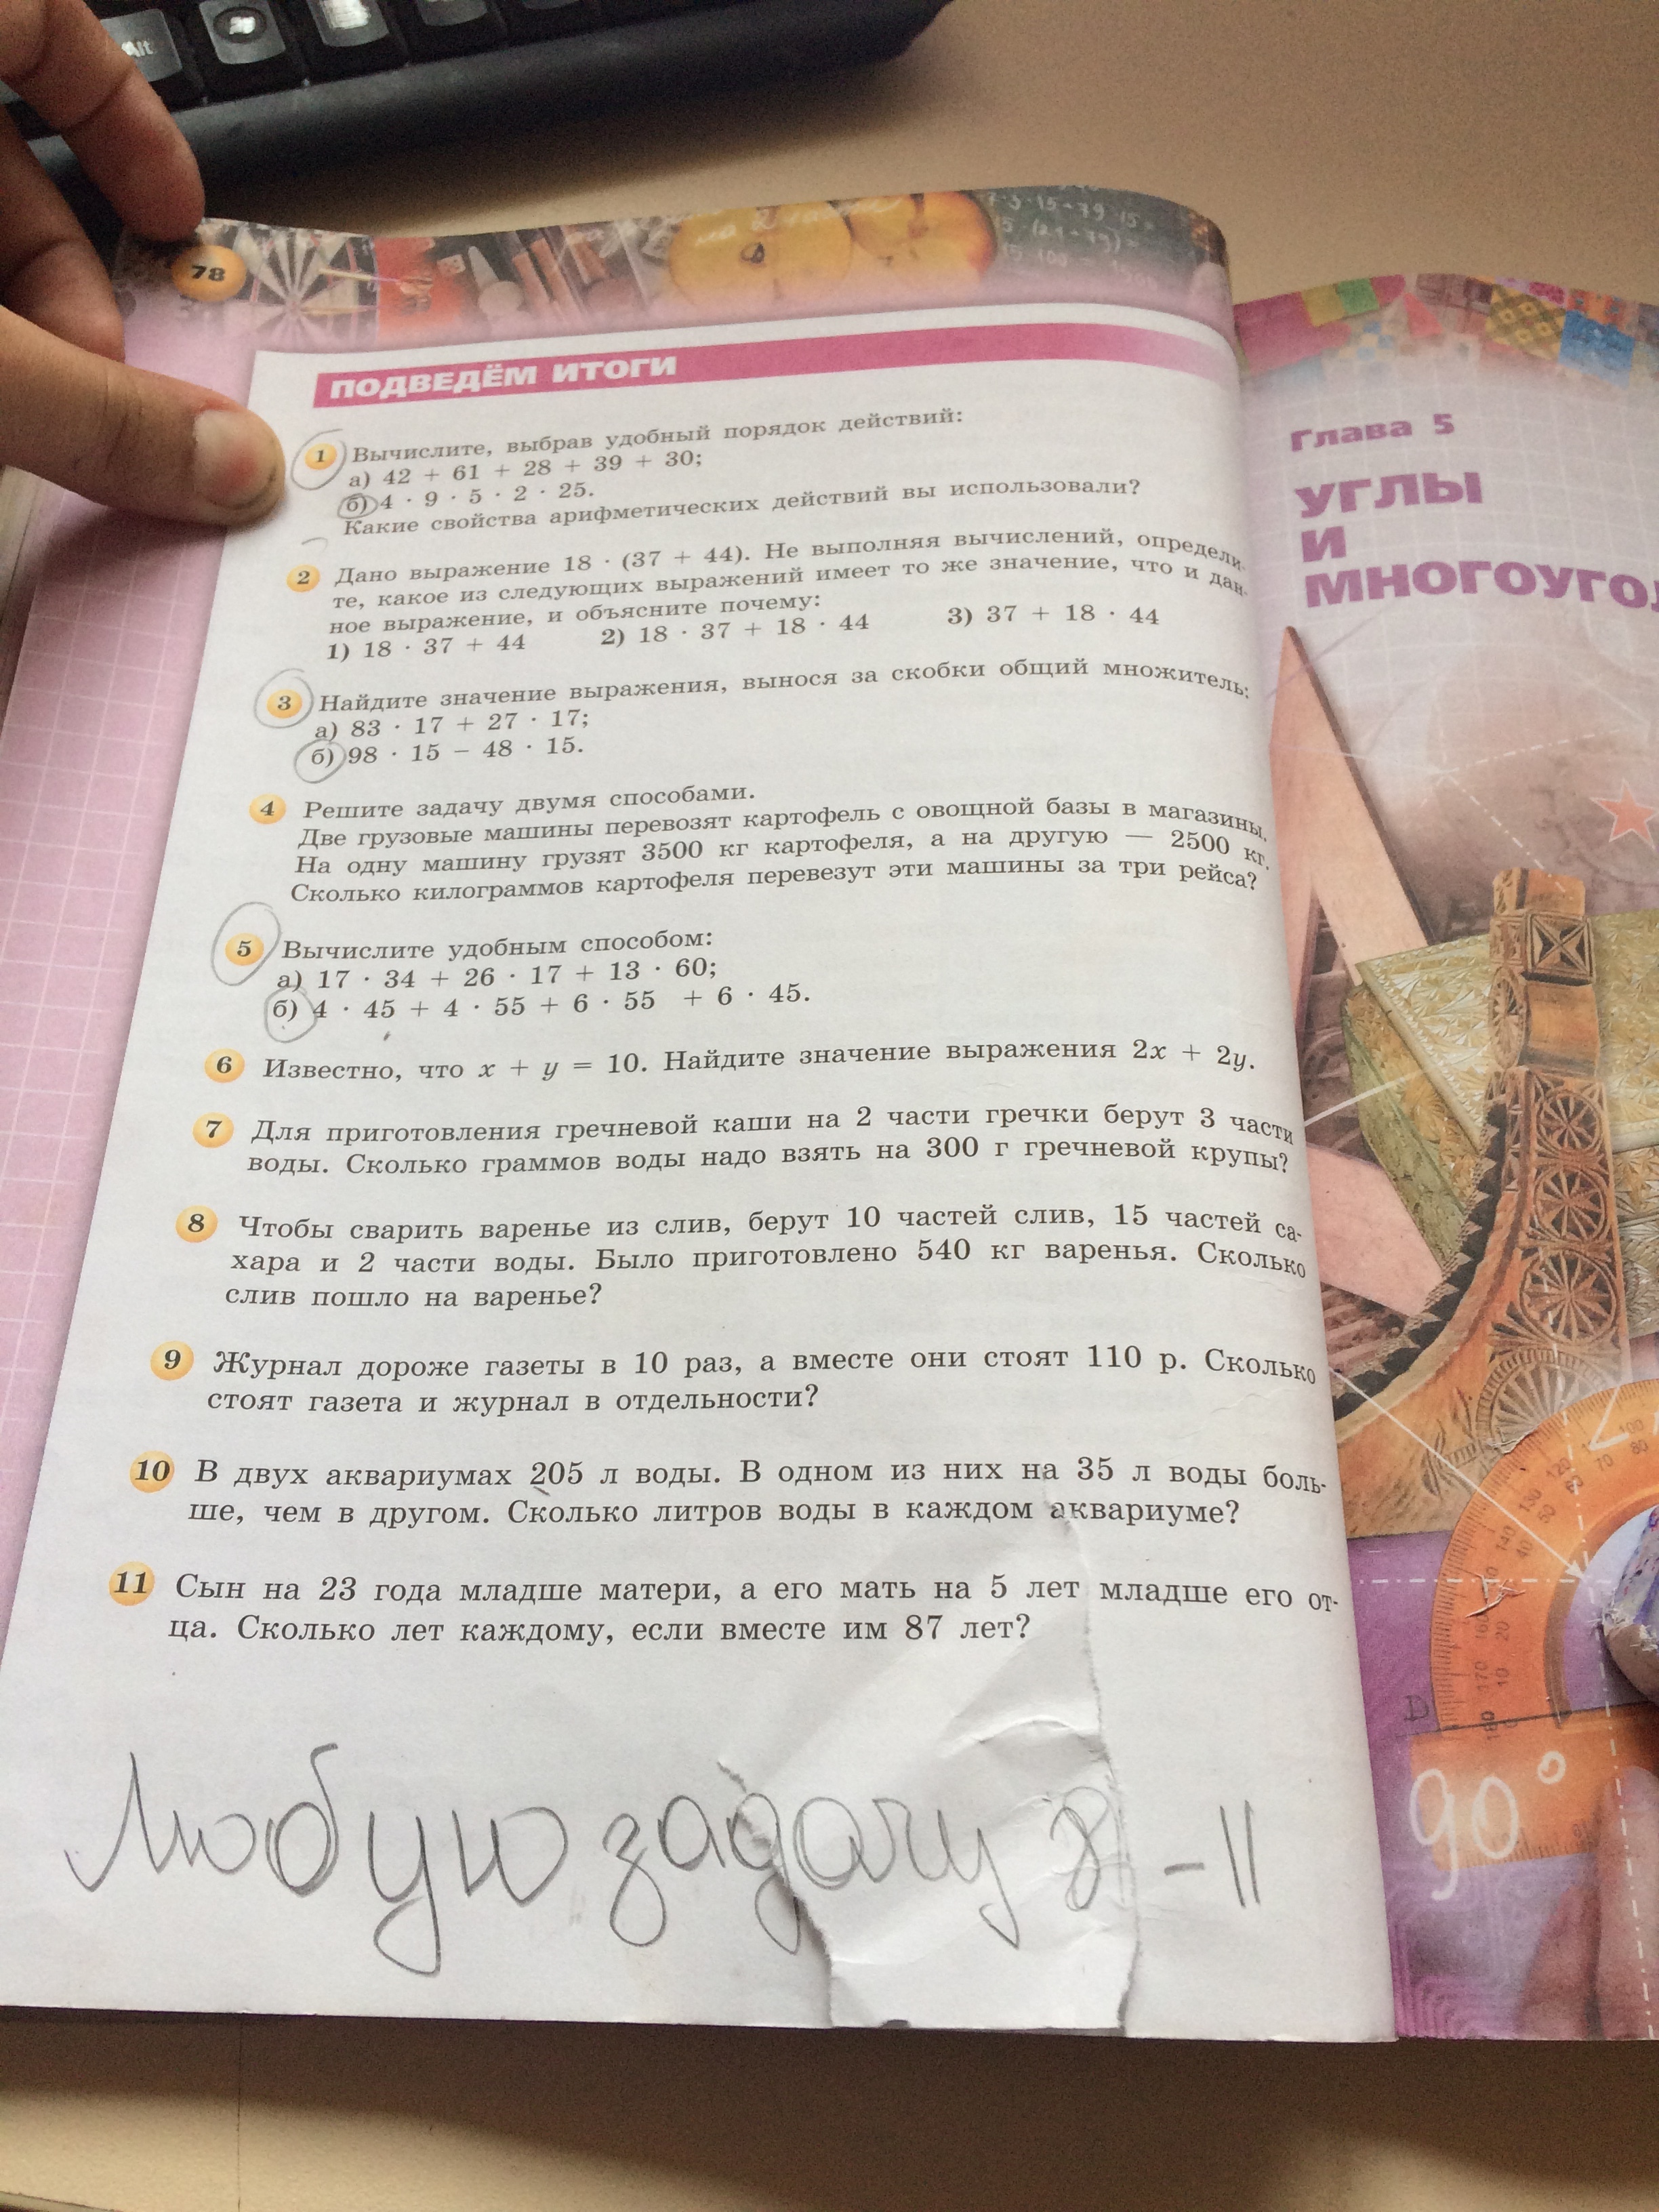 Alt
78
ПОДВЕДЁМ ИТОГИ
1 Вычислите, выбрав удобный порядок действий:
а) 42 + 61 + 28 + 39 + 30;
б) 4 · 9 · 5 · 2 · 25.
Какие свойства арифметических действий вы использовали?
2 Дано выражение 18 · (37 + 44). Не выполняя вычислений, определи-
те, какое из следующих выражений имеет то же значение, что и дан-
ное выражение, и объясните почему:
1) 18 · 37 + 44 2) 18 · 37 + 18 · 44 3) 37 + 18 · 44
3 Найдите значение выражения, вынося за скобки общий множитель:
а) 83 · 17 + 27 · 17;
б) 98 · 15 – 48 · 15.
4 Решите задачу двумя способами.
Две грузовые машины перевозят картофель с овощной базы в магазины.
На одну машину грузят 3500 кг картофеля, а на другую — 2500 кг.
Сколько килограммов картофеля перевезут эти машины за три рейса?
5 Вычислите удобным способом:
а) 17 · 34 + 26 · 17 + 13 · 60;
б) 4 · 45 + 4 · 55 + 6 · 55 + 6 · 45.
6 Известно, что x + y = 10. Найдите значение выражения 2x + 2y.
7 Для приготовления гречневой каши на 2 части гречки берут 3 части
воды. Сколько граммов воды надо взять на 300 г гречневой крупы?
8 Чтобы сварить варенье из слив, берут 10 частей слив, 15 частей са-
хара и 2 части воды. Было приготовлено 540 кг варенья. Сколько
слив пошло на варенье?
9 Журнал дороже газеты в 10 раз, а вместе они стоят 110 р. Сколько
стоят газета и журнал в отдельности?
10 В двух аквариумах 205 л воды. В одном из них на 35 л воды боль-
ше, чем в другом. Сколько литров воды в каждом аквариуме?
11 Сын на 23 года младше матери, а его мать на 5 лет младше его от-
ца. Сколько лет каждому, если вместе им 87 лет?
Любую задачу 8 - 11
Глава 5
УГЛЫ
И
МНОГОУГОЛ
D
90°